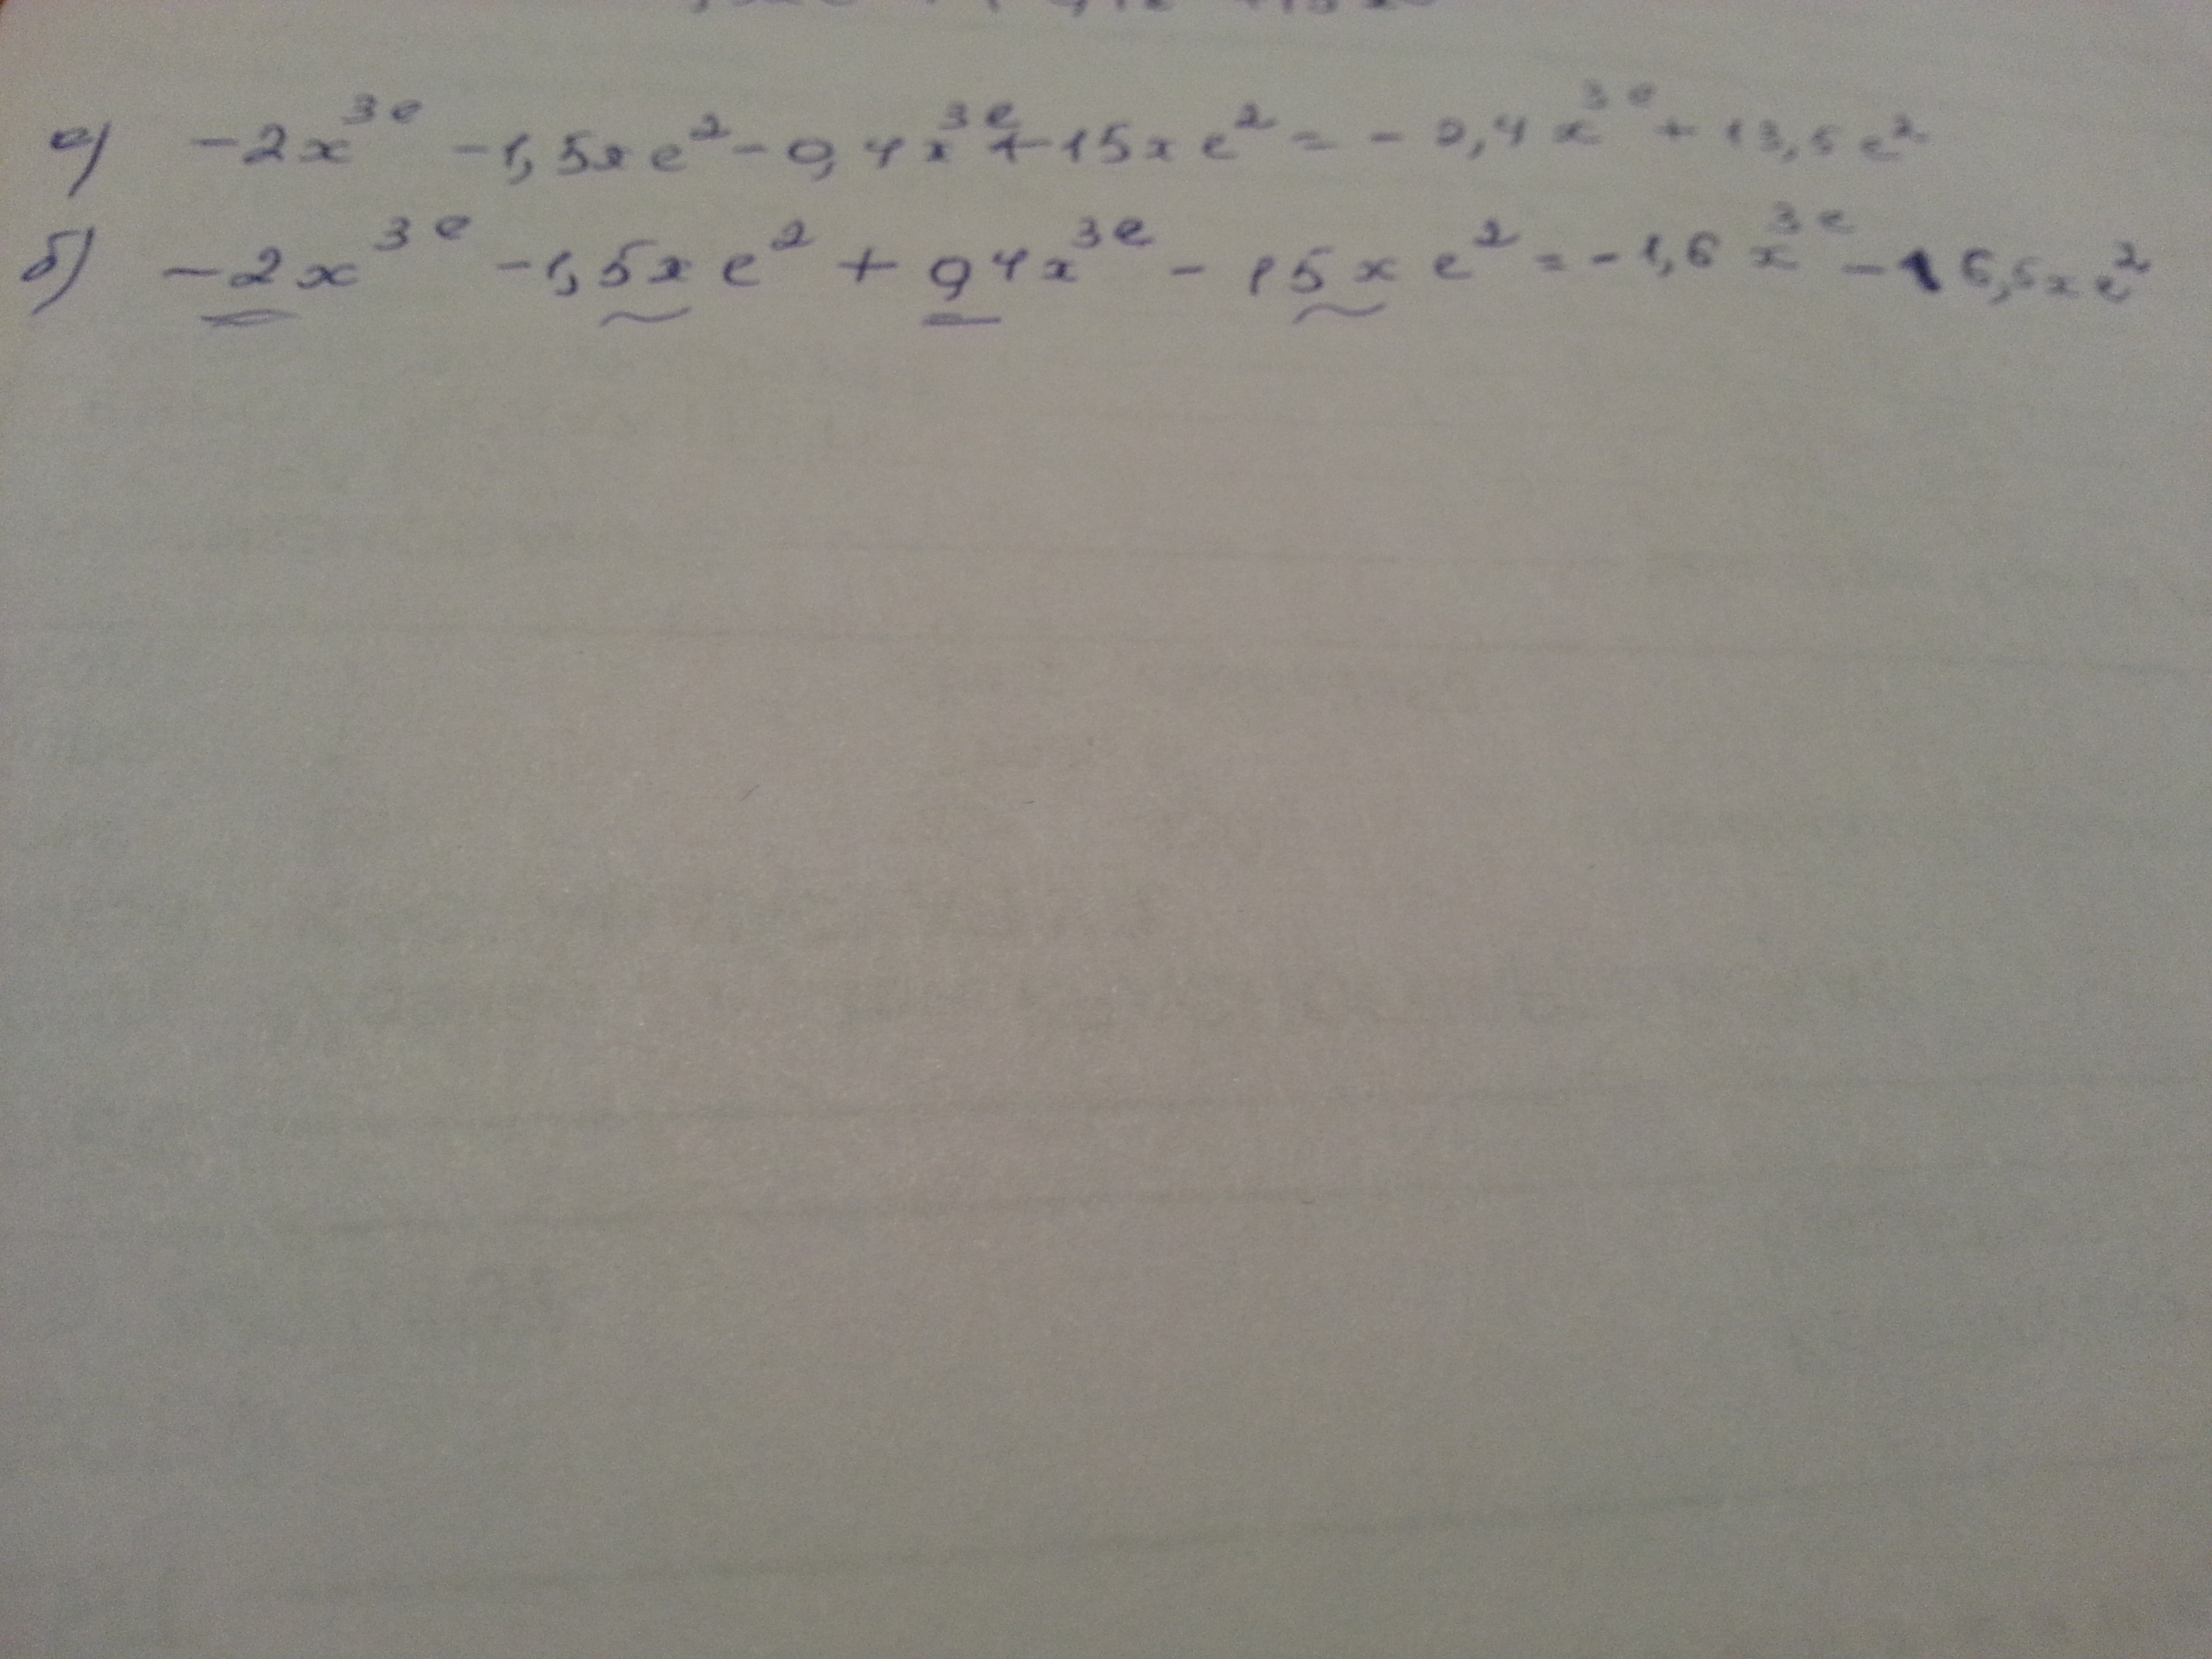 а) -2x^{3e} -1,5xe^2 - 0,4x^{3e} + 15xe^2 = -2,4x^{3e} + 13,5e^2
б) -2x^{3e} -1,5xe^2 + 0,4x^{3e} - 15xe^2 = -1,6x^{3e} - 16,5xe^2